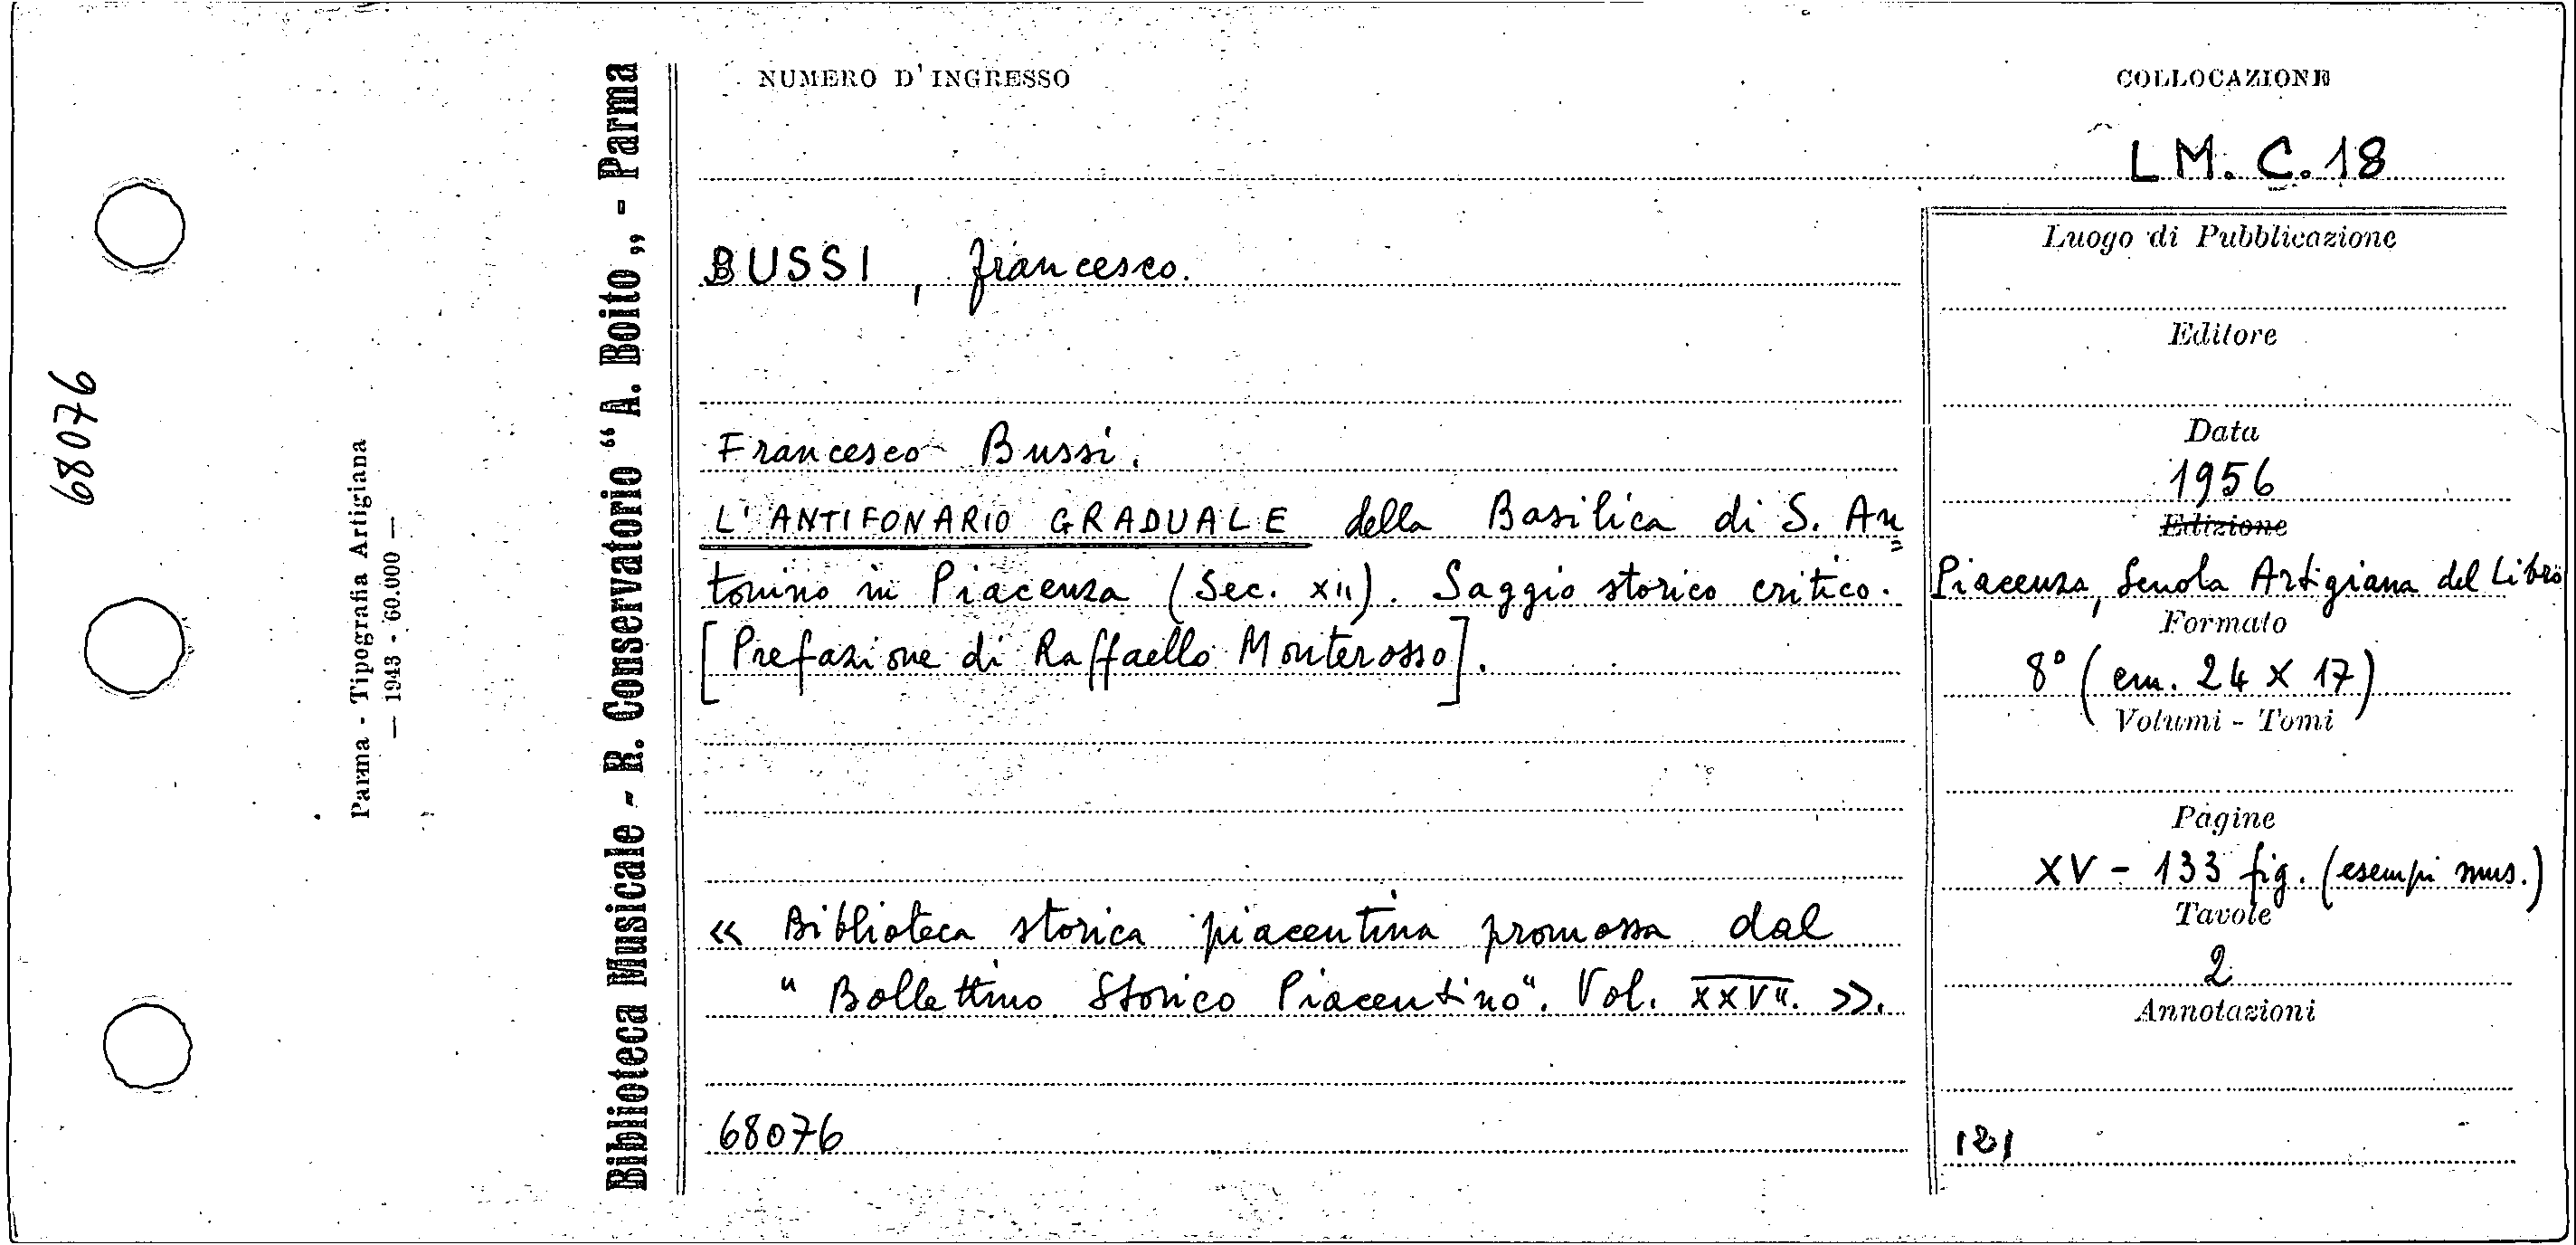 68076
Parma - Tipografia Artigiana
— 1943 - 60.000 —
Biblioteca Musicale - R. Conservatorio “A. Boito„ - Parma
NUMERO D'INGRESSO
BUSSI, Francesco.
Francesco Bussi.
L'ANTIFONARIO GRADUALE della Basilica di S. An=
tonino in Piacenza (Sec. XII). Saggio storico critico.
[Prefazione di Raffaello Monterosso].
« Biblioteca storica piacentina promossa dal
"Bollettino Storico Piacentino". Vol. XXVII. ».
68076
COLLOCAZIONE
LM. C. 18
Luogo di Pubblicazione
Editore
Data
1956
Edizione
Piacenza, Scuola Artigiana del Libro
Formato
8° (cm. 24 X 17)
Volumi - Tomi
Pagine
XV - 133 fig. (esempi mus.)
Tavole
2
Annotazioni